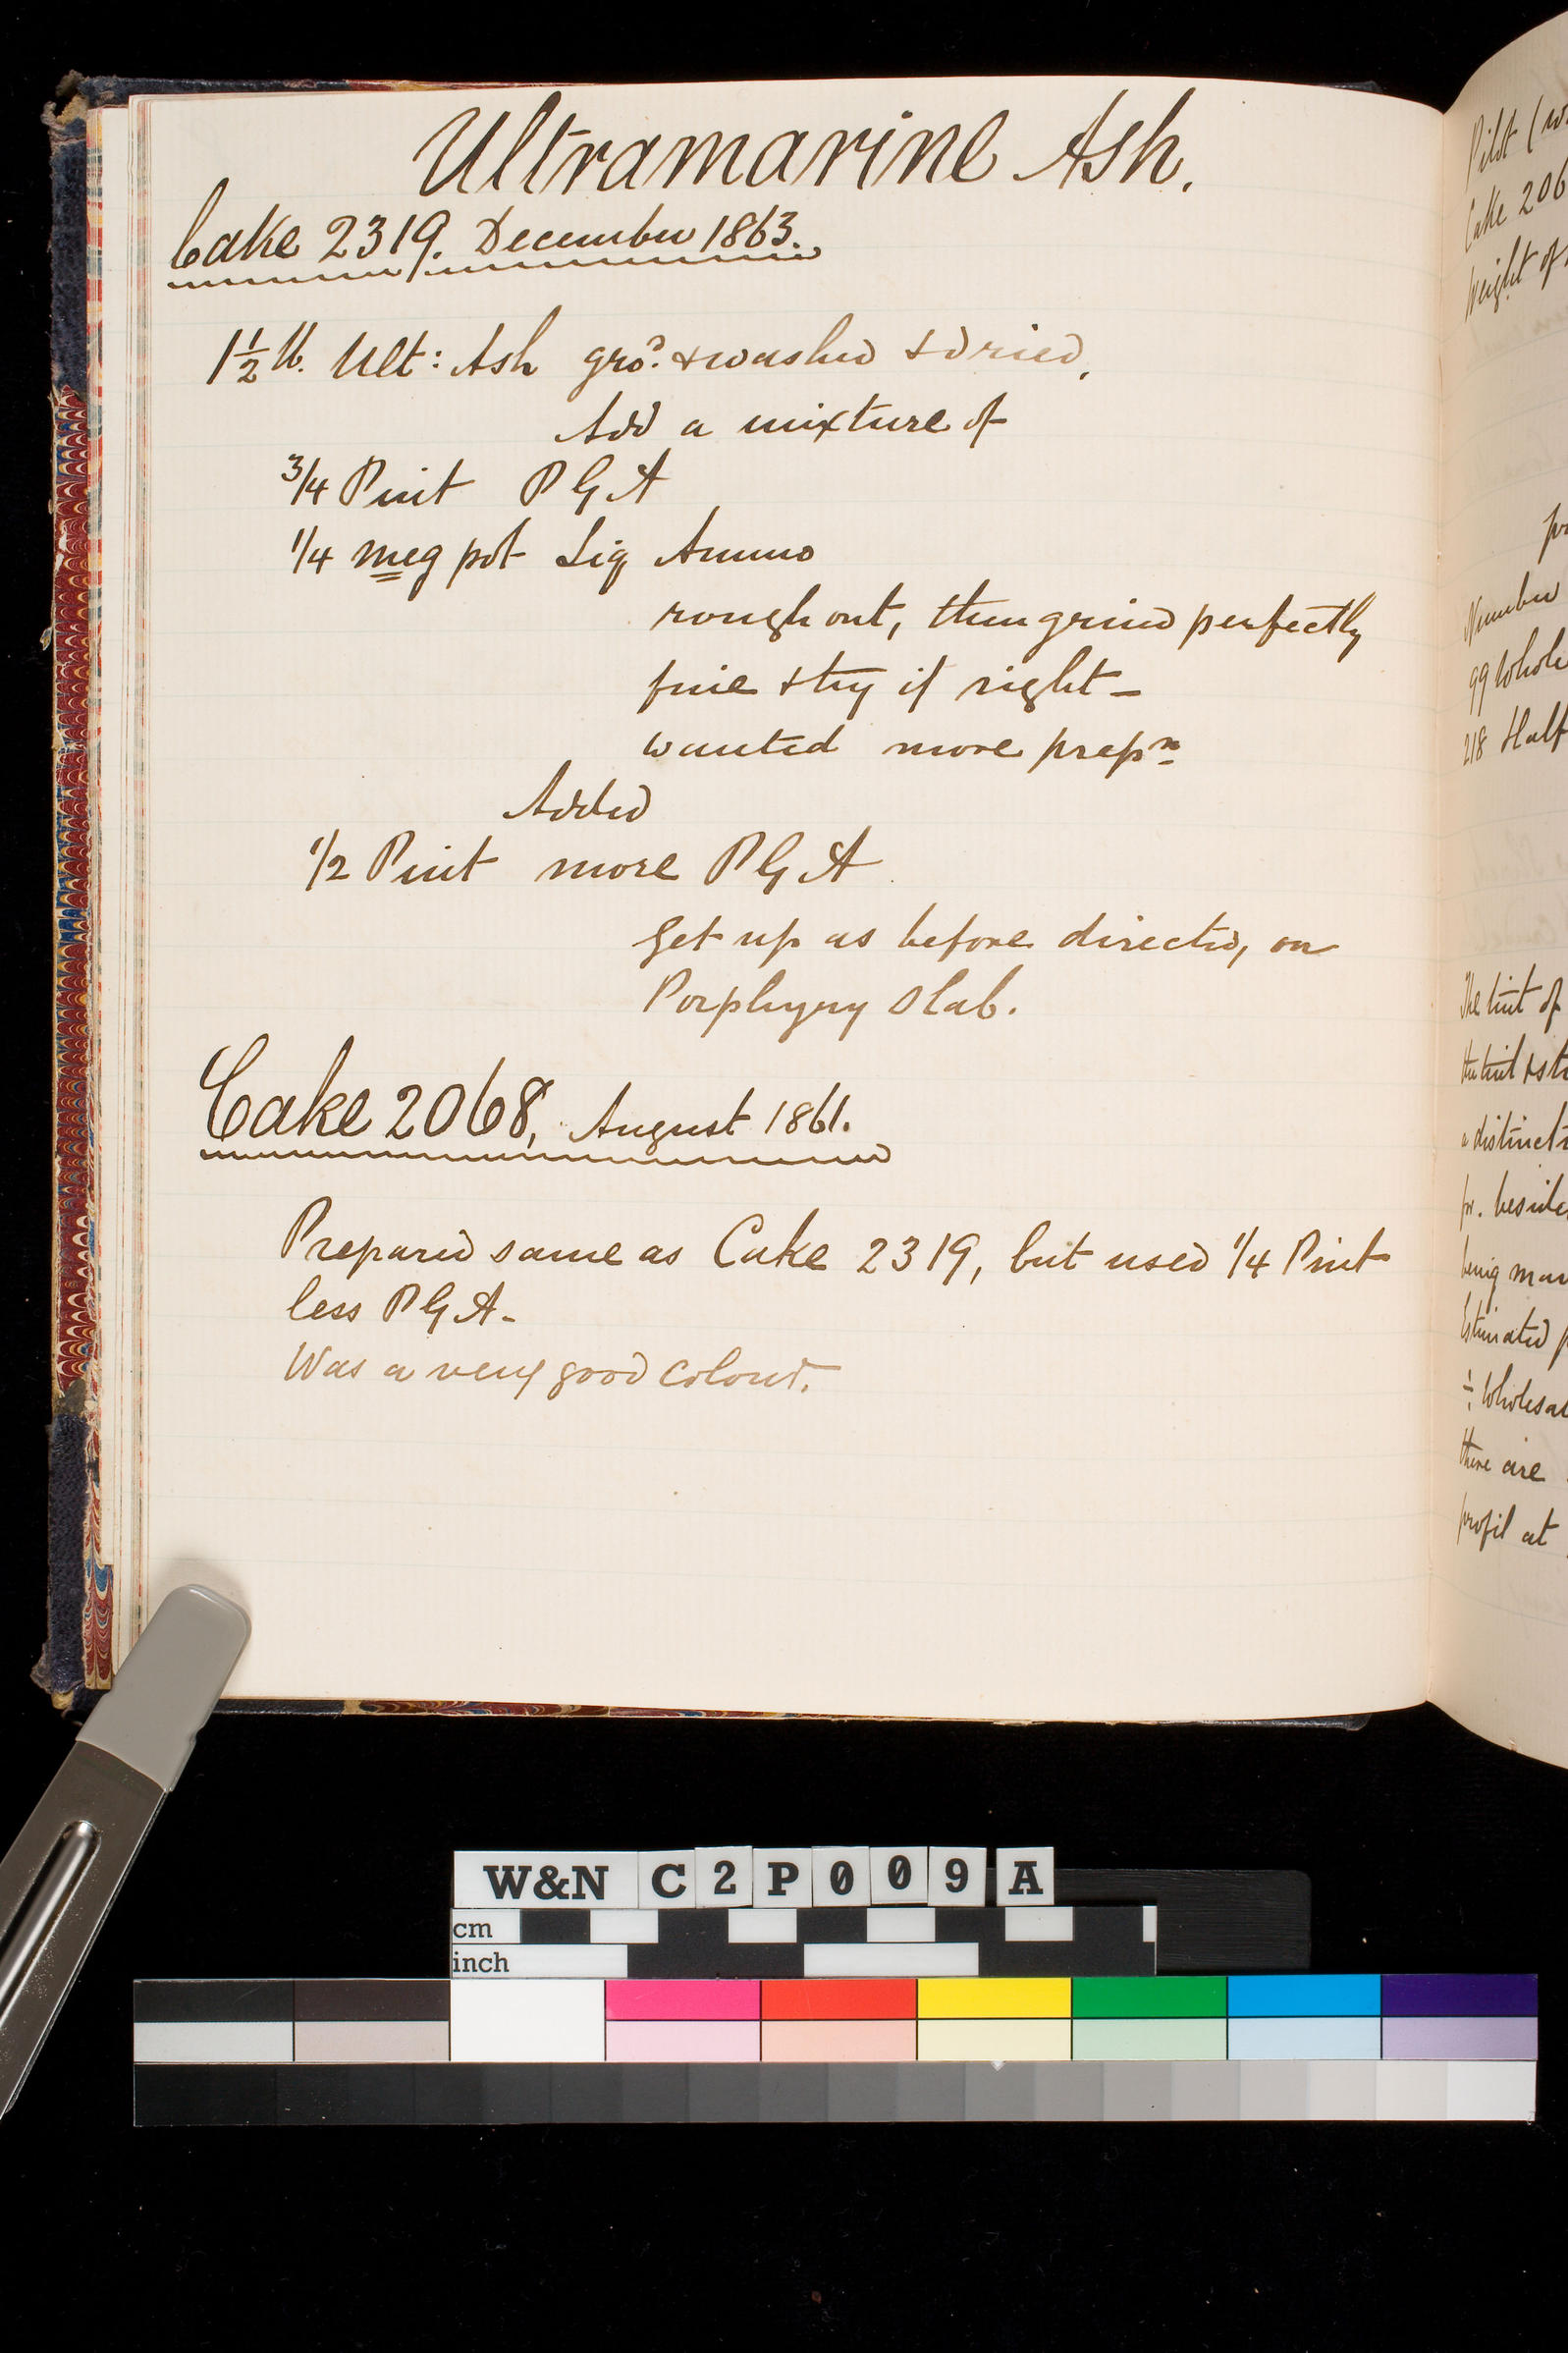 Ultramarine Ash.
Cake 2319. December 1863.
1½ lb. Ult: Ash gro.d & washed & dried.
Add a mixture of
3/4 Pint P G A
1/4 meg pot Liq Ammo
rough out, then grind perfectly
fine & try if right –
wanted more prepn
Added
1/2 Pint more P G A
Get up as before directed, on
Porphyry Slab.
Cake 2068, August 1861.
Prepared same as Cake 2319, but used 1/4 Pint
less P G A –
Was a very good colour.
Pilot
Cake 206
Weight of
Number
99 Whole
218 Half
The tint of
the tint & st
a distinct
pr. beside
being mar
Estimated p
Wholesal
there are
profit at
W&N C2P009A
cm
inch